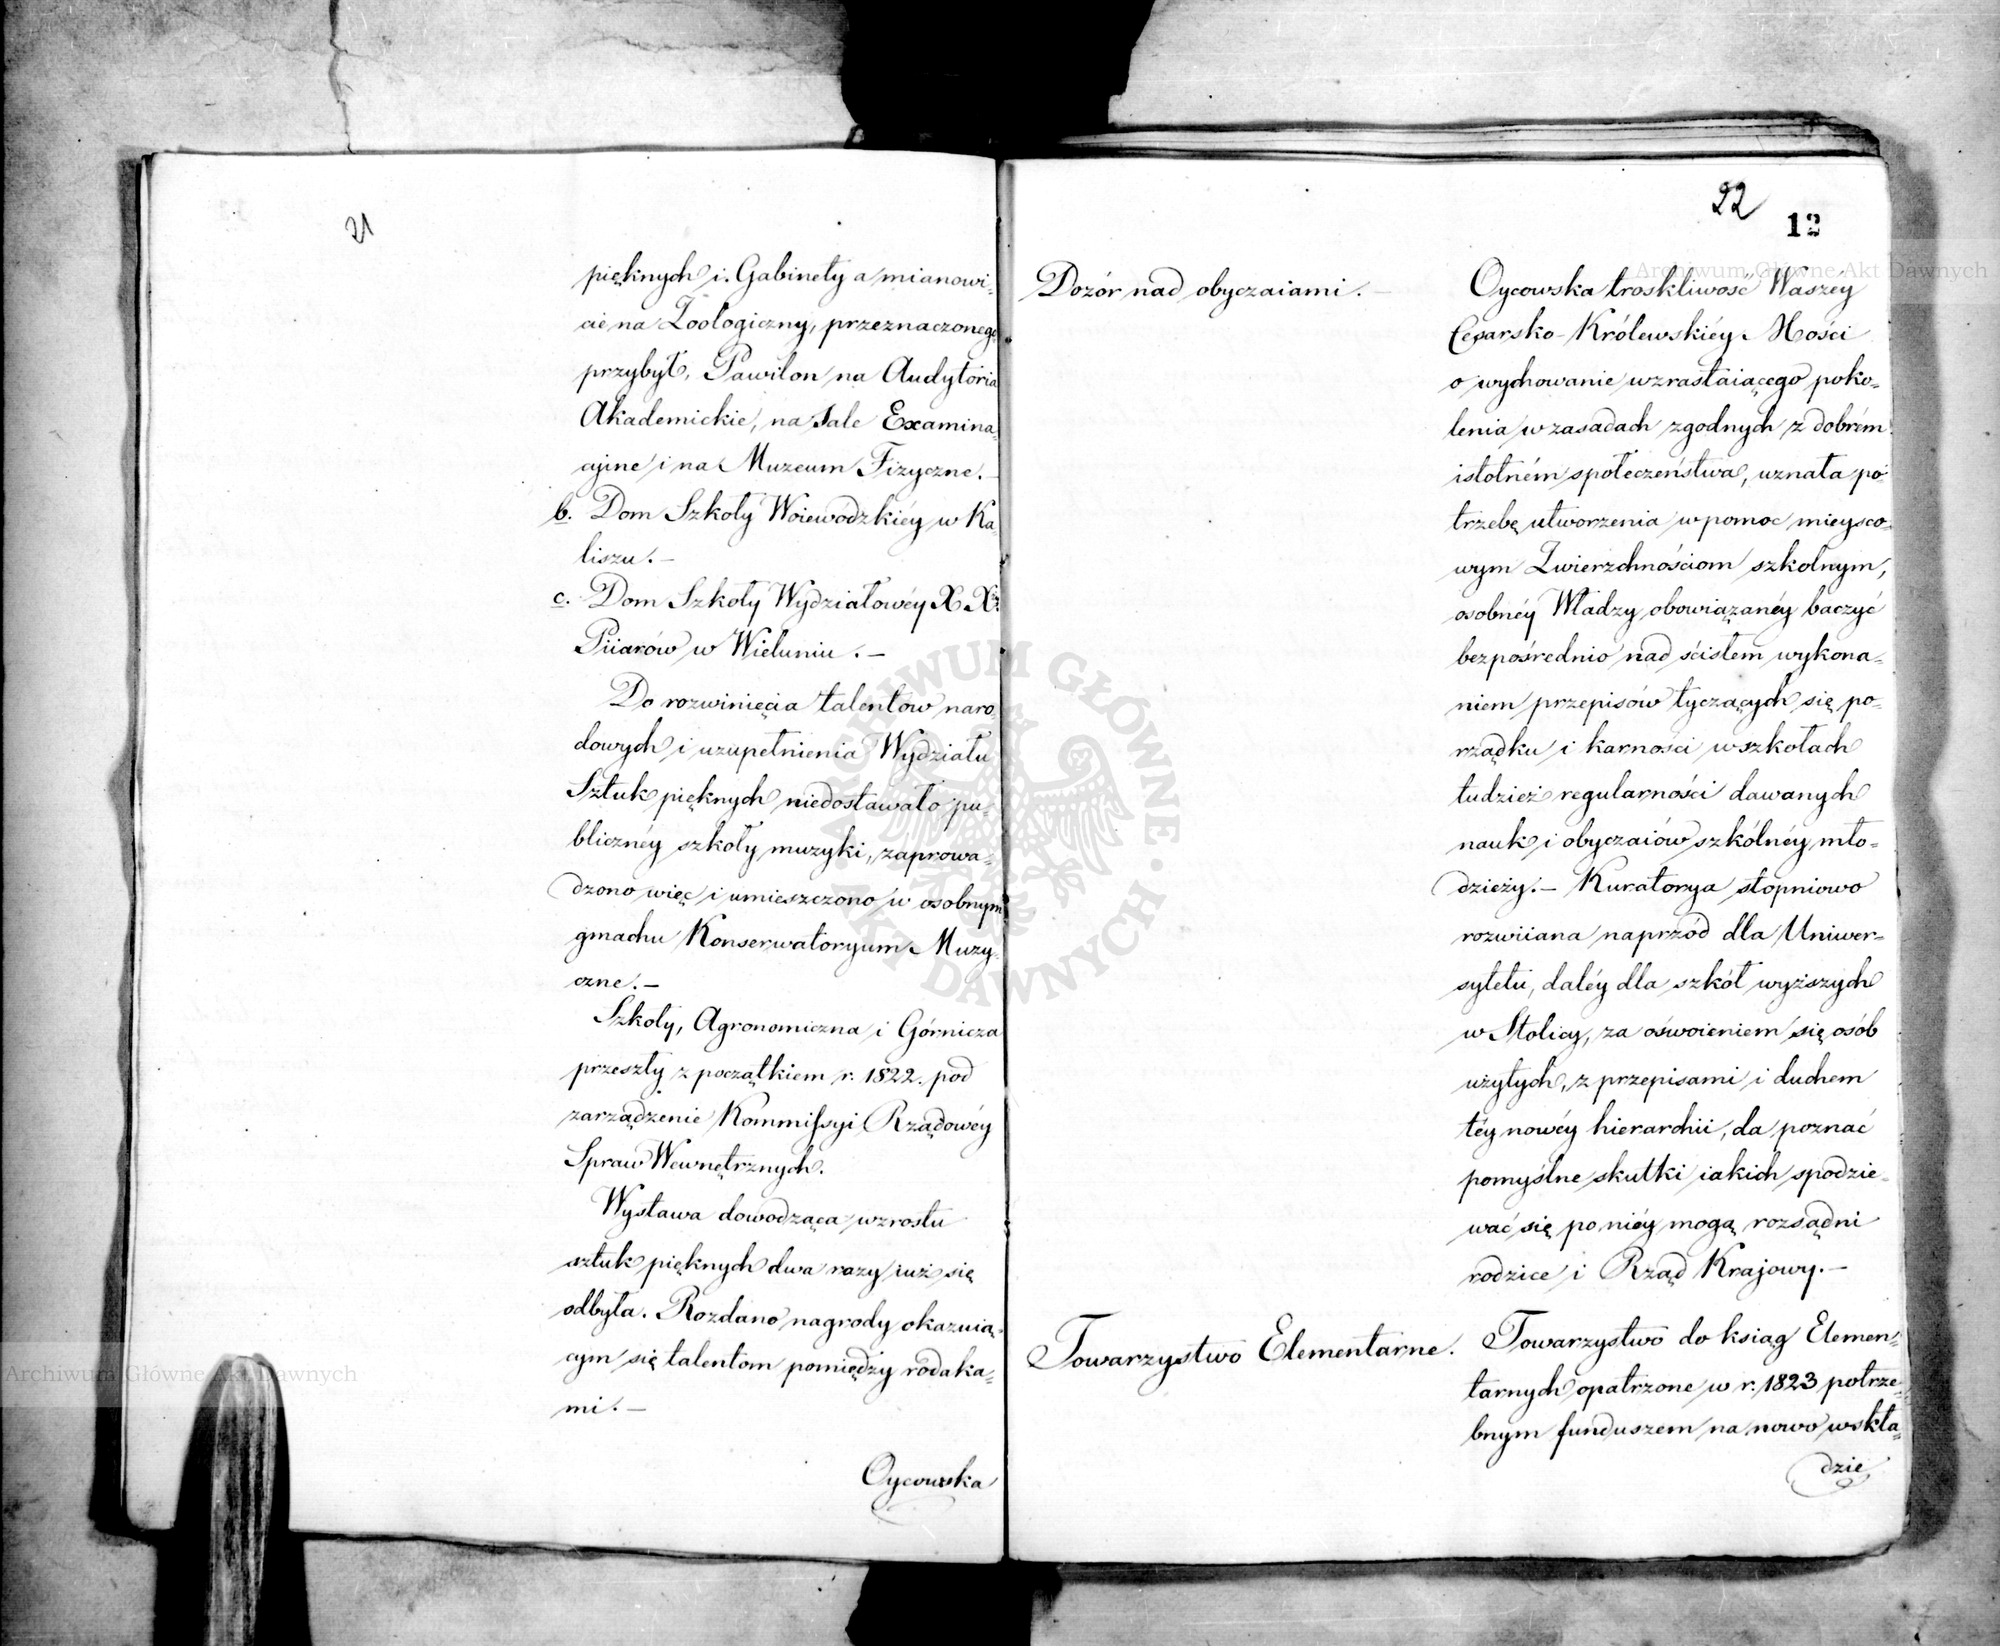 21
pięknych i Gabinety a mianowi-
cie na Zoologiczny, przeznaczonego
przybył, Pawilon na Audytoria
Akademickie, na Sale Examina-
cyine i na Muzeum Fizyczne.-
b. Dom Szkoły Woiewódzkiéy w Ka
liszu.-
c. Dom Szkoły Wydziałowéy XX.
Piiarów w Wieluniu.-
Do rozwinięcia talentów naro-
dowych i uzupełnienia Wydziału
Sztuk pięknych niedostawało pu-
blicznéy szkoły muzyki, zaprowa-
dzono więc i umieszczono w osobnym
gmachu Konserwatoryum Muzy-
czne.-
Szkoły, Agronomiczna i Górnicza
przeszły z początkiem r. 1822. pod
zarządzenie Kommissyi Rządowéy
Spraw Wewnętrznych.
Wystawa dowodząca wzrostu
sztuk pięknych dwa razy iuż się
odbyła. Rozdano nagrody okazuią-
cym się talentom pomiędzy rodaka-
mi.-
Oycowska
22
12
Dozór nad obyczaiami.-
Oycowska troskliwość Waszéy
Cesarsko-Królewskiéy Mości
o wychowanie wzrastaiącego poko-
lenia w zasadach zgodnych z dobrém
istotném społeczeństwa, uznała po-
trzebę utworzenia w pomoc mieysco-
wym Zwierzchnościom szkolnym,
osobnéy Władzy obowiązanéy baczyć
bezpośrednio nad ścisłem wykona-
niem przepisów tyczących się po-
rządku i karności w szkołach
tudzież regularności dawanych
nauk i obyczaiów szkólnéy mło-
dzieży.- Kuratorya stopniowo
rozwiiana naprzód dla Uniwer-
sytetu, daléy dla szkół wyższych
w Stolicy, za oswoieniem się osób
użytych, z przepisami i duchem
téy nowéy hierarchii, da poznać
pomyślne skutki iakich spodzie-
wać się po niéy mogą rozsądni
rodzice i Rząd Krajowy.-
Towarzystwo Elementarne.
Towarzystwo do ksiąg Elemen-
tarnych opatrzone w r. 1823 potrze-
bnym funduszem na nowo w skła-
dzie
Archiwum Główne Akt Dawnych
Archiwum Główne Akt Dawnych
ARCHIWUM GŁÓWNE AKT DAWNYCH